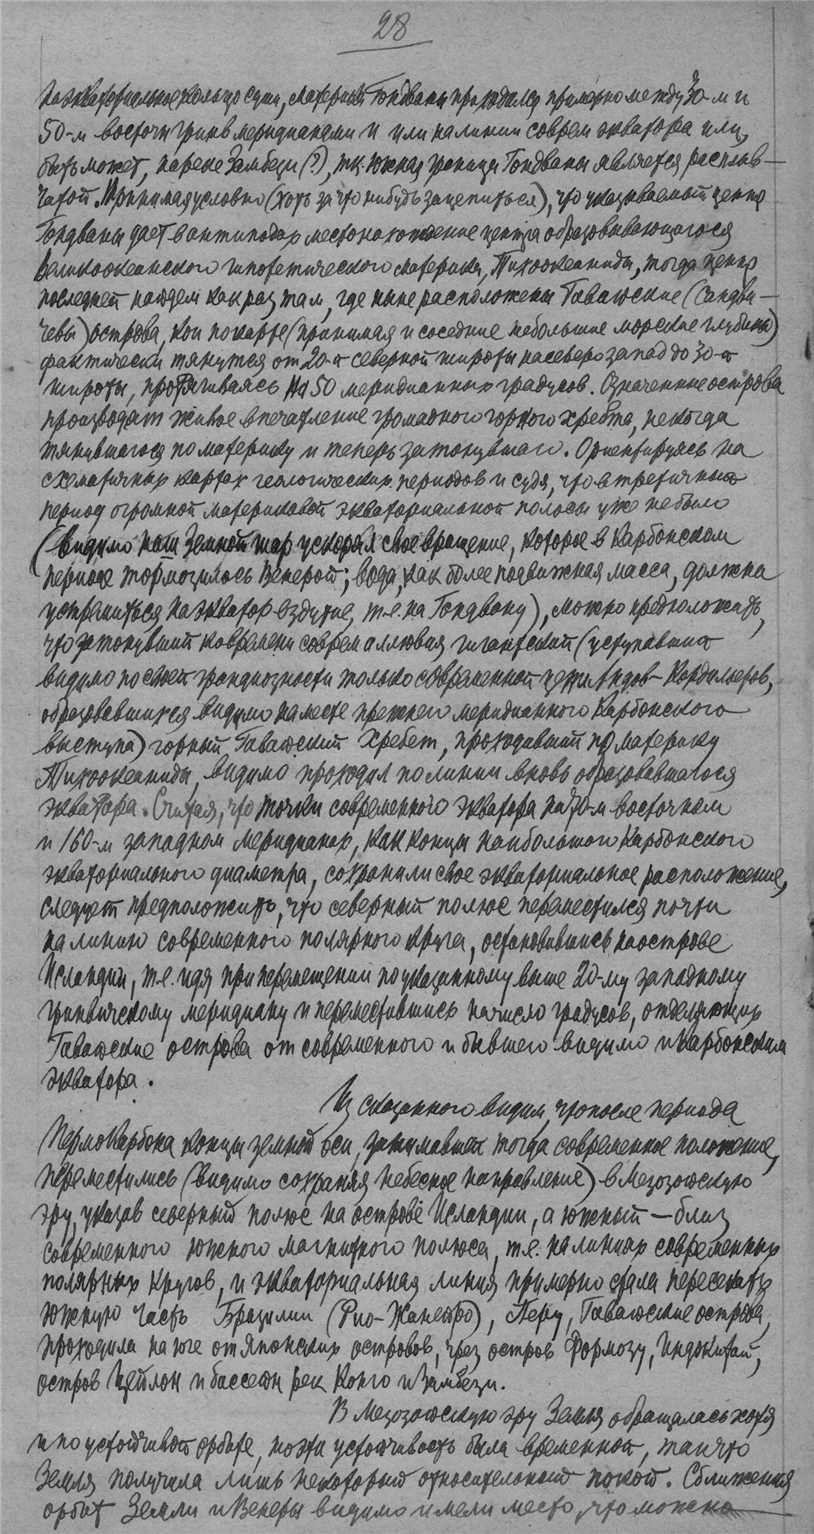 28
на экваториальное кольцо суши, материка Гондваны приходился примерно между 30-м и
50-м восточн гринв меридианами и или на линии соврем экватора или,
быть может, на реке Замбези (?), т.к. южная граница Гондваны является расплыв-
чатой. Принимая условно (хоть за что нибудь зацепиться), что указываемый центр
Гондваны дает в антиподах местонахождение центра образовывающагося
Великоокеанского гипотетического материка, Тихоокеаниды, тогда центр
последней найдем как раз там, где ныне расположены Гавайские (Сандви-
чевы) острова, кои по карте (принимая и соседние небольшие морские глубины)
фактически тянутся от 20-й северной широты на северо запад до 30-й
широты, протягиваясь на 50 меридианных градусов. Означенные острова
производят живое впечатление громадного горного хребта, некогда
тянувшагося по материку и теперь затонувшаго. Ориентируясь на
схематичных картах геологических периодов и судя, что в третичный
период огромной материковой экваториальной полосы уже не было
(видимо наш Земной шар ускорял свое вращение, которое в Карбонском
периоде тормозилось Венерой; вода, как более подвижная масса, должна
устремиться на экватор вздутие, т.е. на Гондвану), можно предположить,
что затонувший ко времени соврем аллювия гигантский (уступавший
видимо по своей грандиозности только современной цепи Андов-Кордильеров,
образовавшихся видимо на месте прежнего меридианного Карбонского
выступа) горный Гавайский Хребет, проходивший по материку
Тихоокеаниды, видимо проходил по линии вновь образовавшагося
экватора. Считая, что точки современного экватора на 70-м восточном
и 160-м западном меридианах, как концы наибольшого Карбонского
экваториального диаметра, сохранили свое экваториальное расположение,
следует предположить, что северный полюс переместился почти
на линию современного полярного круга, остановившись на острове
Исландии, т.е. идя при перемещении по указанному выше 20-му западному
гринвичскому меридиану и переместившись на число градусов, отделяющих
Гавайские острова от современного и бывшего видимо и Карбонским
экватора.
Из сказанного видим, что после периода
ПермоКарбона концы земной оси, занимавшей тогда современное положение,
переместились (видимо сохраняя небесное направление) в Мезозойскую
эру, указав северный полюс на острове Исландии, а южный — близ
современного южного магнитного полюса, т.е. на линиях современных
полярных кругов, и экваториальная линия примерно стала пересекать
южную часть Бразилии (Рио-Жанейро), Перу, Гавайские острова,
проходила на юге от Японских островов, чрез остров Формозу, Индокитай,
остров Цейлон и бассейн рек Конго и Замбези.
В Мезозойскую эру Земля обращалась хотя
и по устойчивой орбите, но эта устойчивость была временной, так что
Земля получила лишь некоторый относительный покой. Сближения
орбит Земли и Венеры видимо имели место, что можно